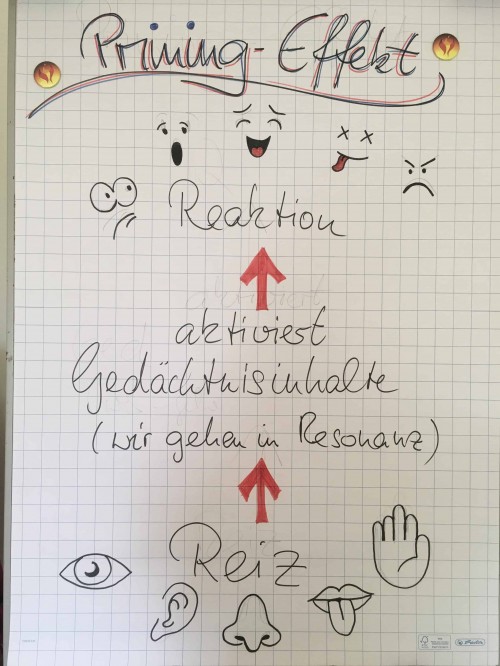 Priming-Effekt
Reaktion
aktiviert
Gedächtnisinhalte
(wir gehen in Resonanz)
Reiz